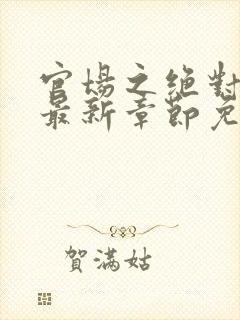 官場之絕對
最新章節免
賀滿姑